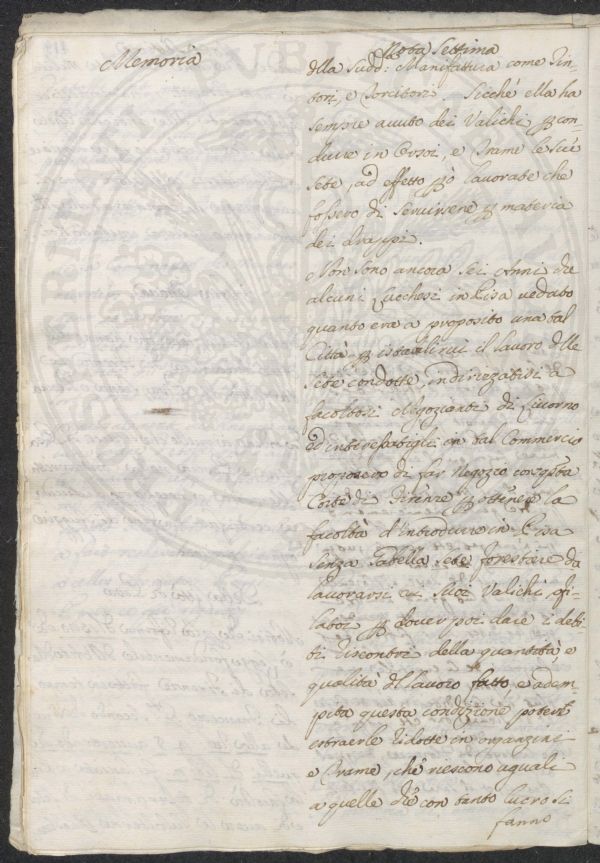 Memoria
Nota Settima
della Sudd: Manifattura come Tin-
tori, e Torcitori. Sicchè ella ha
sempre avuto dei Valichi p con-
durre in Orsoi, e Trame le sue
Sete, ad effetto p lavorate che
fossero di servirsene p materia
dei drappi.
Non sono ancora sei Anni che
alcuni Lucchesi in Pisa veduto
quanto era a proposito una tal
Città p istabilirvi il lavoro delle
Sete condotte, indirizzatisi a
facoltosi Negozianti di Livorno
ed interessatigli in tal Commercio
di far Negozio con questa
Corte di Firenze p ottenere la
facoltà d'introdurre in Pisa
senza Gabella Sete forestiere da
lavorarsi ai suoi Valichi, e fi-
latoi p dover poi dare i debi-
ti riscontri della quantità, e
qualità del lavoro fatto, e adem-
pita questa condizione poterle
estraerle ridotte in organzini
e Trame, che riescono uguali
a quelle che con tanto lucro si
fanno